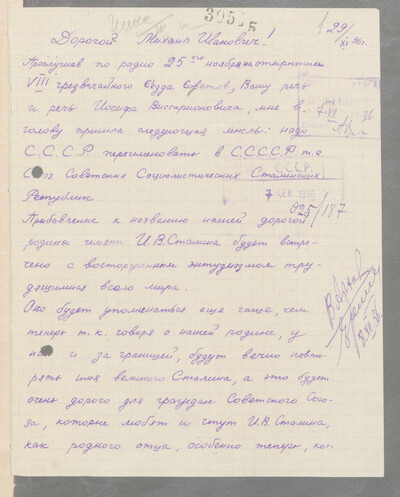 39555
1 29/XI 36г.
Дорогой Михаил Иванович!
Прослушав по радио 25ого ноября на открытии
VIII чрезвычайного съезда Советов, Вашу речь
и речь Иосифа Виссарионовича, мне в
голову пришла следующая мысль: надо
С.С.С.Р. переименовать в С.С.С.С.Р. т.е.
Союз Советских Социалистических Сталинских
Республик.
7 ДЕК 1936
025/187
Прибавление к названию нашей дорогой
родины имени И.В.Сталина будет встре-
чено с восторженным энтузиазмом тру-
дящимися всего мира.
Оно будет упоминаться еще чаще, чем
теперь т.к. говоря о нашей родине, у
нас и за границей, будут вечно повто-
рять имя великого Сталина, а это будет
очень дорого для граждан Советского Сою-
за, которые любят и чтут И.В.Сталина,
как родного отца, особенно теперь, ког-
В Архив